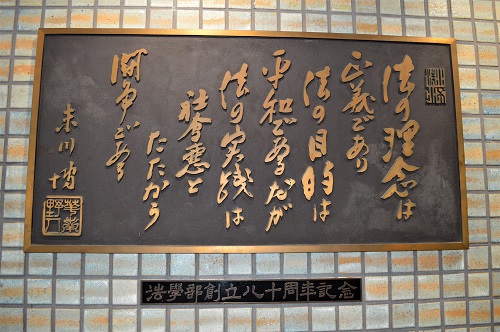 法の理念は
正義であり
法の目的は
平和であるだが
法の実践は
社会悪と
たたかう
闘争である
末川博
法學部創立八十周年記念